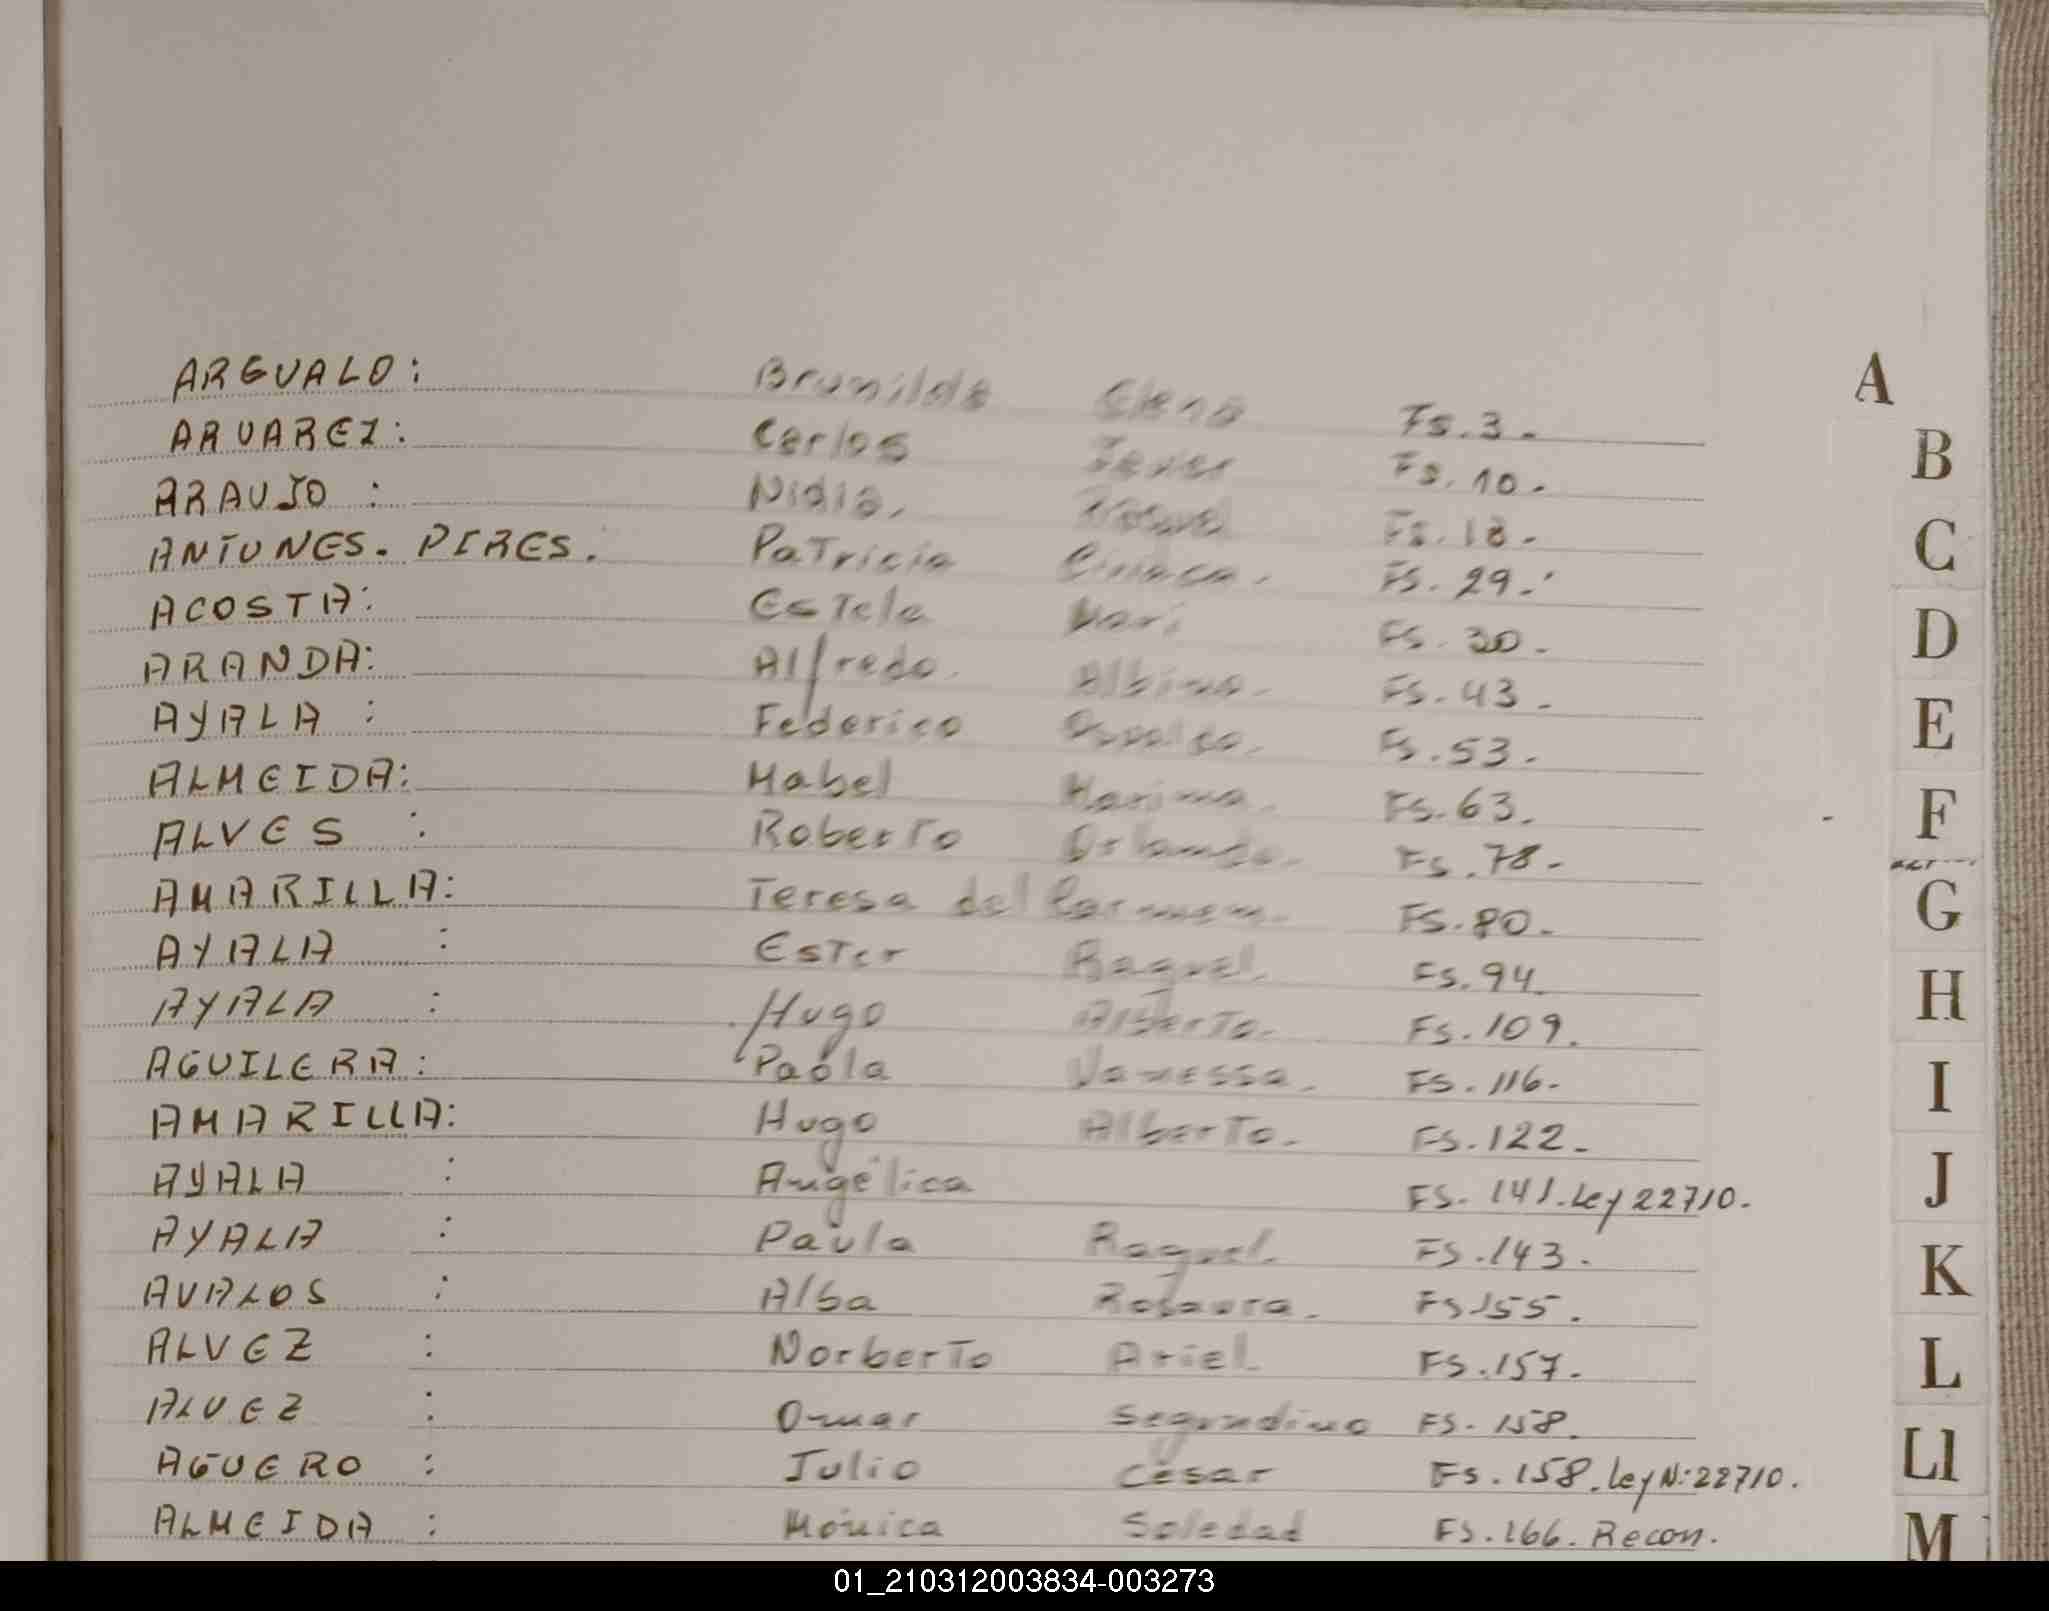 ARGUALO: Brunilda Elena Fs. 3.-
A
ARUAREZ: Carlos Javier Fs. 10.-
B
ARAUJO : Nidia. Raquel Fs. 18.-
C
ANTUNES. PIRES. Patricia Ciriaca. Fs. 29.-
ACOSTA: Estela Mari Fs. 30.-
D
ARANDA: Alfredo. Albino. Fs. 43.-
AYALA : Federico Osvaldo. Fs. 53.-
E
ALMEIDA: Mabel Marina. Fs. 63.
F
ALVES : Roberto Orlando. Fs. 78.-
AMARILLA: Teresa del Carmen. Fs. 80.-
G
AYALA : Ester Raquel. Fs. 94.
H
AYALA : Hugo Alberto. Fs. 109.
AGUILERA: Paola Vanessa. Fs. 116.-
I
AMARILLA: Hugo Alberto. Fs. 122.-
AYALA : Angélica Fs. 141. Ley 22710.
J
AYALA : Paula Raquel. Fs. 143.
K
AVALOS : Alba Rosaura. Fs 155.
ALVEZ : Norberto Ariel. Fs. 157.-
L
ALVEZ : Omar Segundino Fs. 158.
AGUERO : Julio César Fs. 158. Ley N: 22710.
Ll
ALMEIDA : Mónica Soledad Fs. 166. Recon.
M
01_210312003834-003273